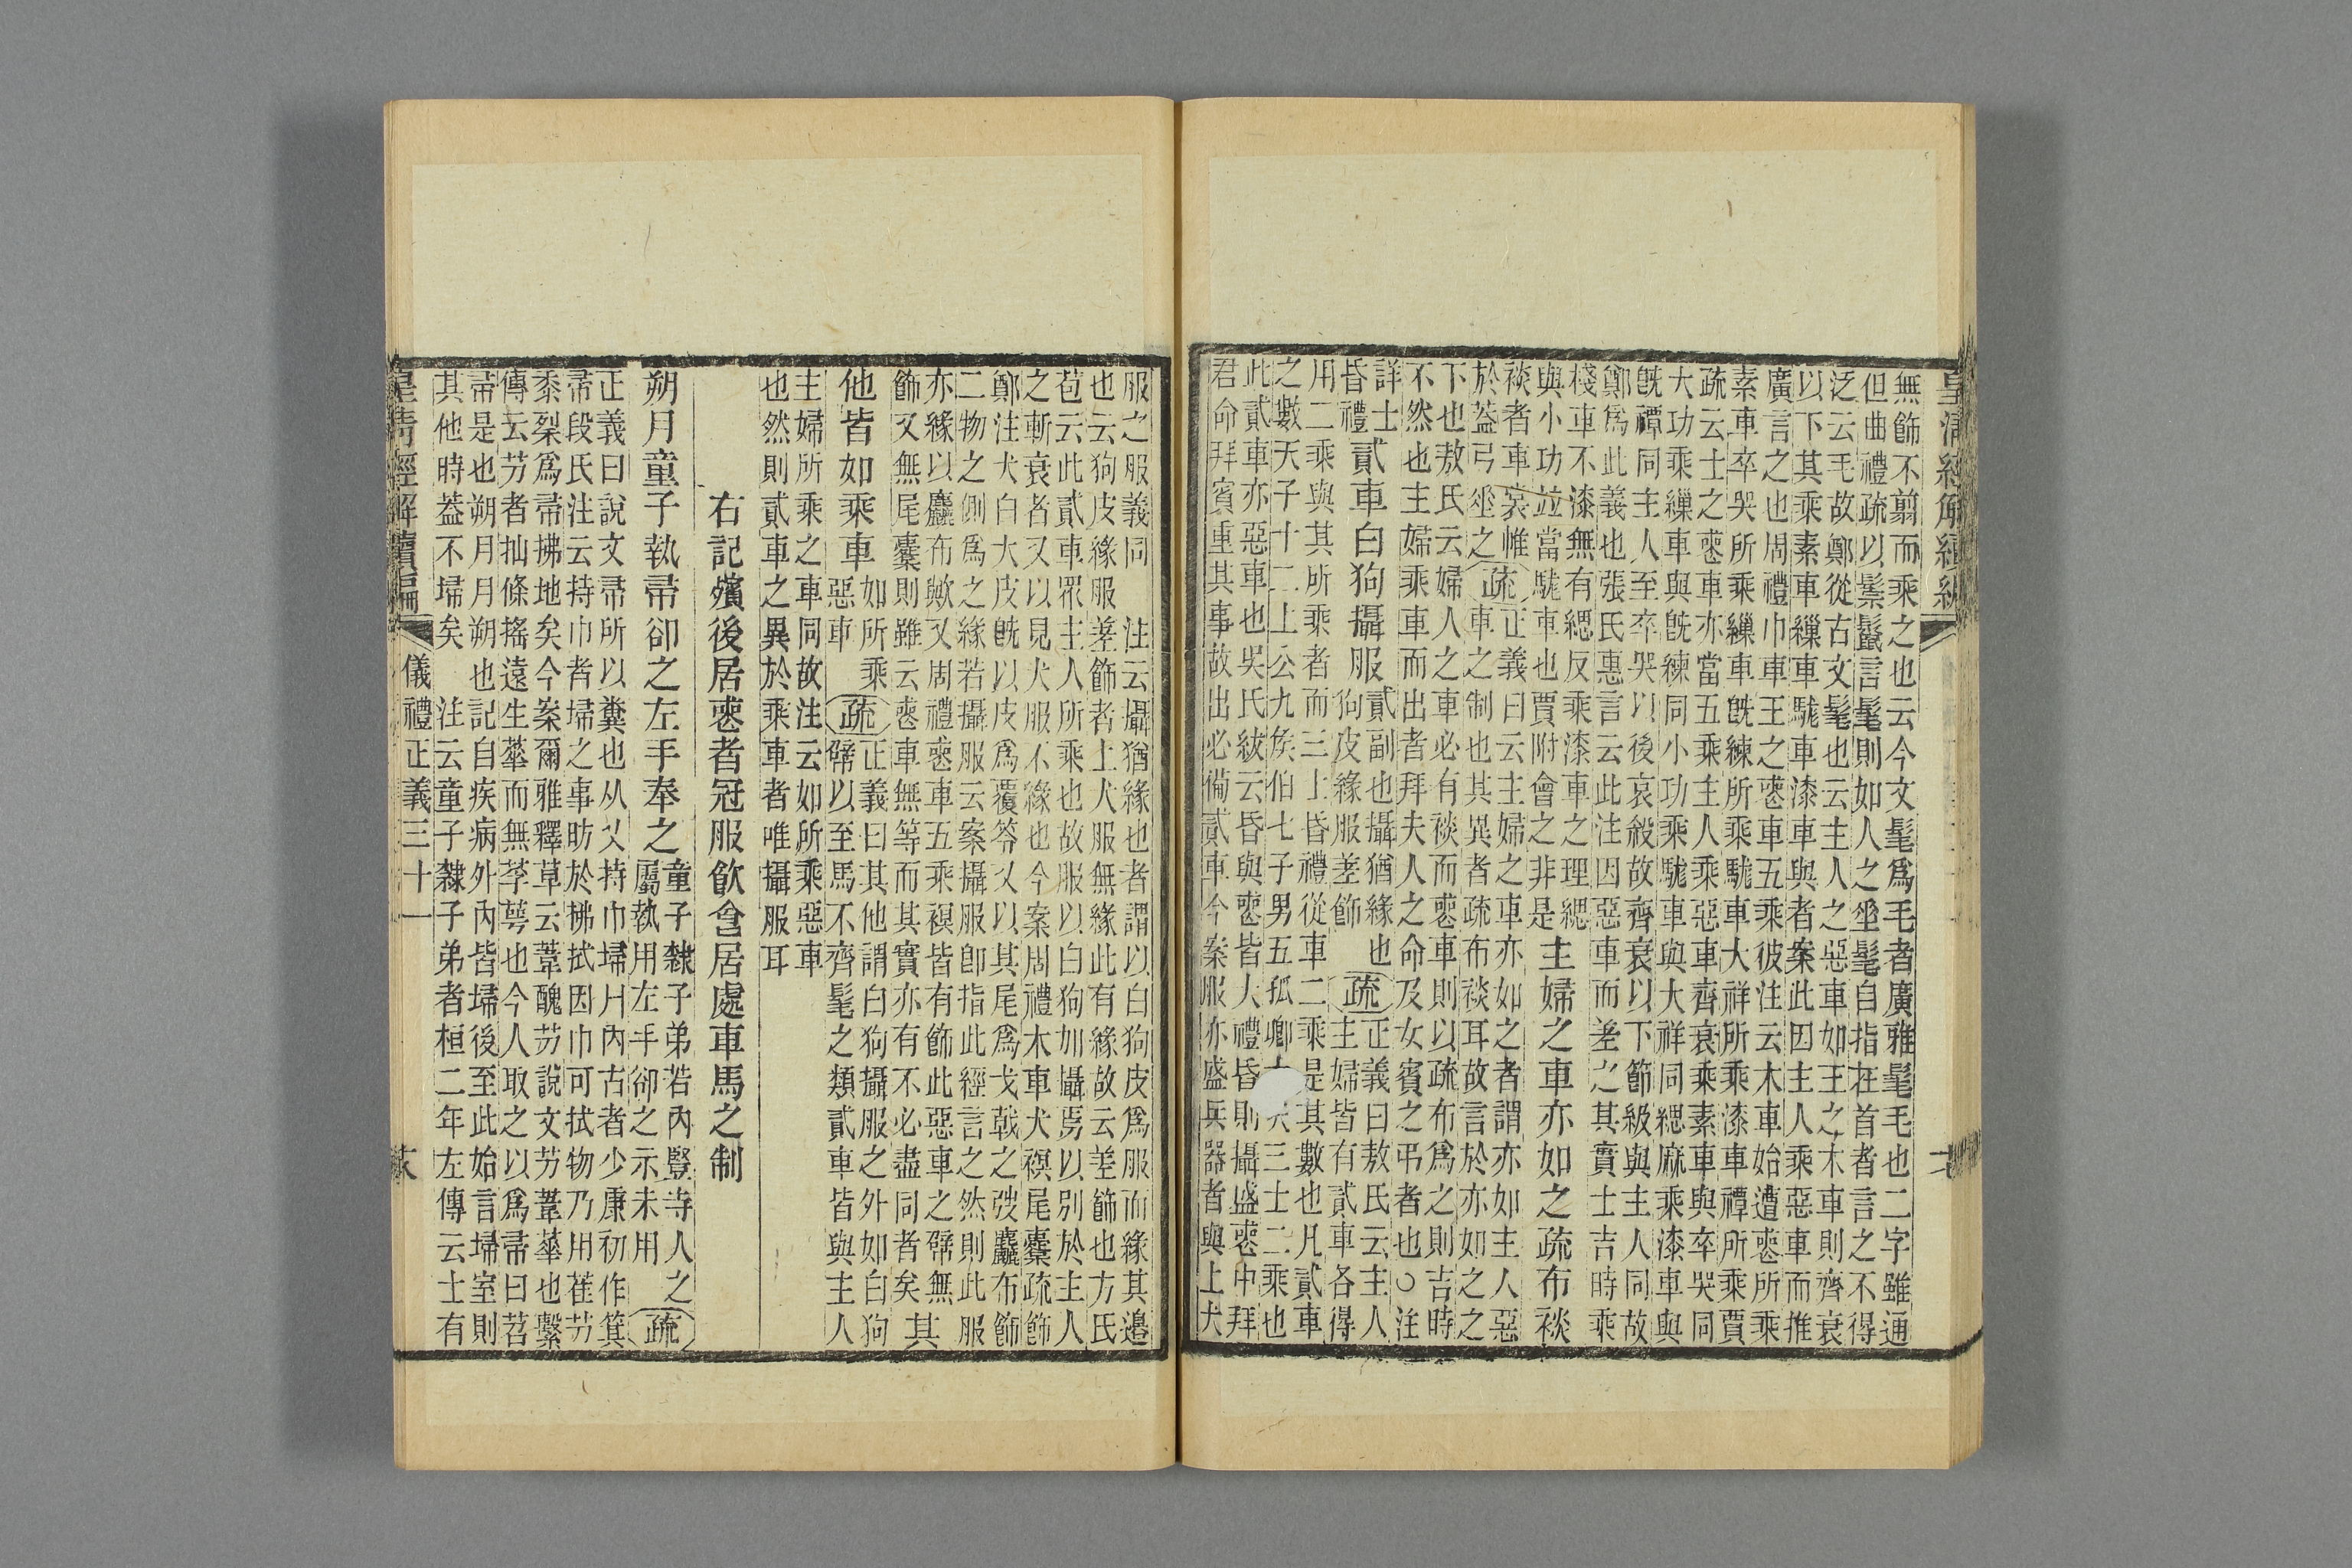 皇清經解續編
無飾不翦而乘之也云今文髦爲毛者廣雅髦毛也二字雖通
但曲禮疏以鬃鬣言髦則如人之坐髦自指在首者言之不得
泛云毛故鄭從古文髦也云主人之惡車如王之木車則齊衰
以下其乘素車繅車駹車漆車與者案此因主人乘惡車而推
廣言之也周禮巾車王之喪車五乘彼注云木車始遭喪所乘
素車卒哭所乘繅車旣練所乘駹車大祥所乘漆車禫所乘賈
疏云士之喪車亦當五乘主人乘惡車齊衰乘素車與卒哭同
大功乘繅車與旣練同小功乘駹車與大祥同緦麻乘漆車與
旣禫同主人至卒哭以後哀殺故齊衰以下節級與主人同故
鄭爲此義也張氏惠言云此注因惡車而差之其實士吉時乘
棧車不漆無有緦反乘漆車之理緦
與小功竝當駹車也賈附會之非是
主婦之車亦如之疏布裧
裧者車裳帷
於蓋弓垂之
疏
正義曰云主婦之車亦如之者謂亦如主人惡
車之制也其異者疏布裧耳故言於亦如之之
下也敖氏云婦人之車必有裧而喪車則以疏布爲之則吉時
不然也主婦乘車而出者拜夫人之命及女賓之弔者也○注
詳士
昏禮
貳車白狗攝服
貳副也攝猶緣也
狗皮緣服差飾
疏
正義曰敖氏云主人
主婦皆有貳車各得
用二乘與其所乘者而三上昏禮從車二乘是其數也凡貳車
之數天子十二上公九矦伯七子男五孤卿三士二乘也
此貳車亦惡車也吳氏紱云昏與喪皆大禮昏則攝盛喪中拜
君命拜賓重其事故出必備貳車今案服亦盛兵器者與上犬
服之服義同　注云攝猶緣也者謂以白狗皮爲服而緣其邉
也云狗皮緣服差飾者上犬服無緣此有緣故云差飾也方氏
苞云此貳車眾主人所乘也故服以白狗加攝焉以別於主人
之斬衰者又以見犬服不緣也今案周禮木車犬䙝尾櫜疏飾
鄭注犬白犬皮旣以皮爲覆笭又以其尾爲戈戟之弢麤布飾
二物之側爲之緣若攝服云案攝服卽指此經言之然則此服
亦緣以麤布歟又周禮喪車五乘䙝皆有飾此惡車之幦無
飾又無尾櫜則雖云喪車無等而其實亦有不必盡同者矣其
他皆如乘車
如所乘
惡車
疏
正義曰其他謂白狗攝服之外如白狗
幦以至馬不齊髦之類貳車皆與主人
主婦所乘之車同故注云如所乘惡車
也然則貳車之異於乘車者唯攝服耳
右記殯後居喪者冠服飮食居處車馬之制
朔月童子執帚卻之左手奉之
童子隸子弟若內豎寺人之
屬執用左手卻之示未用
疏
正義曰說文帚所以糞也从又持巾埽冂內古者少康初作箕
帚段氏注云持巾者埽之事昉於拂拭因巾可拭物乃用萑艻
黍䅀爲帚拂地矣今案爾雅釋草云葦醜艻說文艻葦華也繫
傳云艻者抽條搖遠生華而無莩萼也今人取之以爲帚曰苕
帚是也朔月月朔也記自疾病外內皆埽後至此始言埽室則
其他時蓋不埽矣　注云童子隸子弟者桓二年左傳云士有
皇清經解續編
儀禮正義三十一